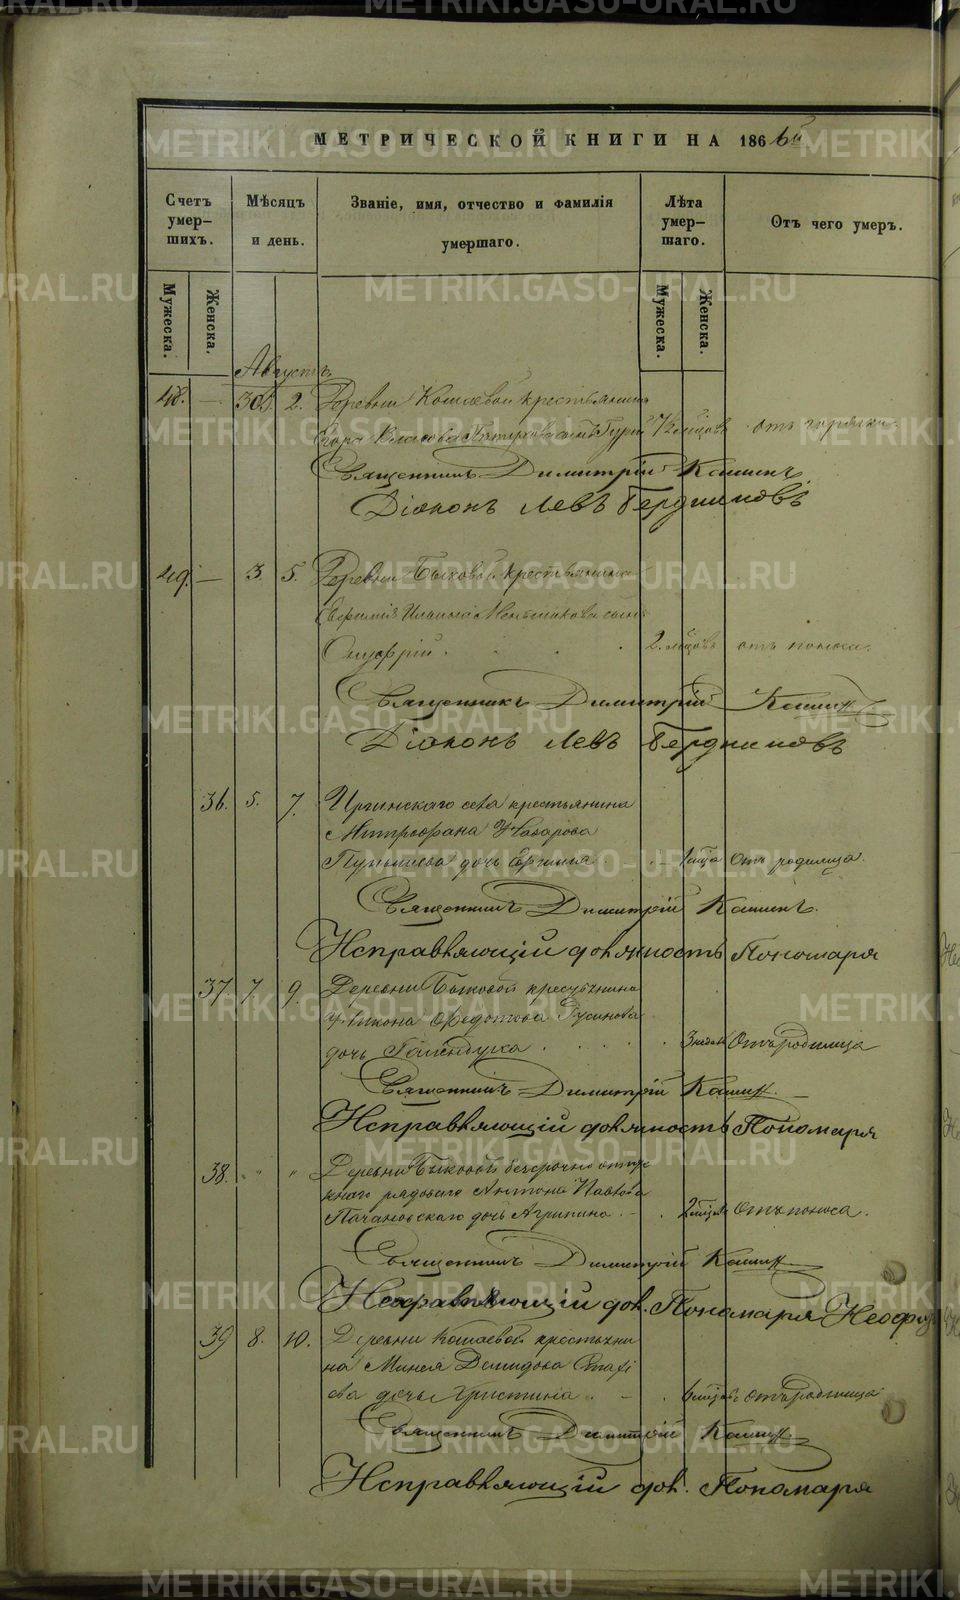 МЕТРИЧЕСКОЙ КНИГИ НА 1866й
Счетъ умер-шихъ.
Мѣсяцъ и день.
Званіе, имя, отчество и фамилія умершаго.
Лѣта умер-шаго.
Отъ чего умеръ.
Мужеска. Женска. Мужеска. Женска.
Августъ.
48. — 2. Деревни Кошаевой крестьянина
Егора Власова сынъ Гурій отъ горячки.
Священникъ Димитрій Кашинъ
Діаконъ Левъ Бердниковъ
49. — 3. 5. Деревни Быковой крестьянина
Евфимія Ильина сынъ
Онуфрій. 2. мѣсяцовъ отъ поноса.
Священникъ Димитрій Кашинъ
Діаконъ Левъ Бердниковъ
36. 5. 7. Иргинскаго села крестьянина
Митрофана Назарова
дочь отъ родимца.
Священникъ Димитрій Кашинъ.
Исправляющій должность Пономаря
37. 7 9. Деревни Быковой крестьянина
Ѳедотова Русинова
дочь 3 недѣль Отъ родимца
Священникъ Димитрій Кашинъ.
Исправляющій должность Пономаря
38. " " Деревни Быковой безсрочно отпу-
кнаго рядоваго Антона Павлова
дочь Агрипина. 2 мѣсяц. Отъ поноса.
Священникъ Димитрій Кашинъ
Исправляющій дол. Пономаря Неоф
39 8. 10. Деревни Кошаевой крестьяни
на Минея Демидова Стахѣ
ева дочь Христина. Отъ родимца
Священникъ Димитрій Кашинъ.
Исправляющій дол. Пономаря
METRIKI.GASO-URAL.RU